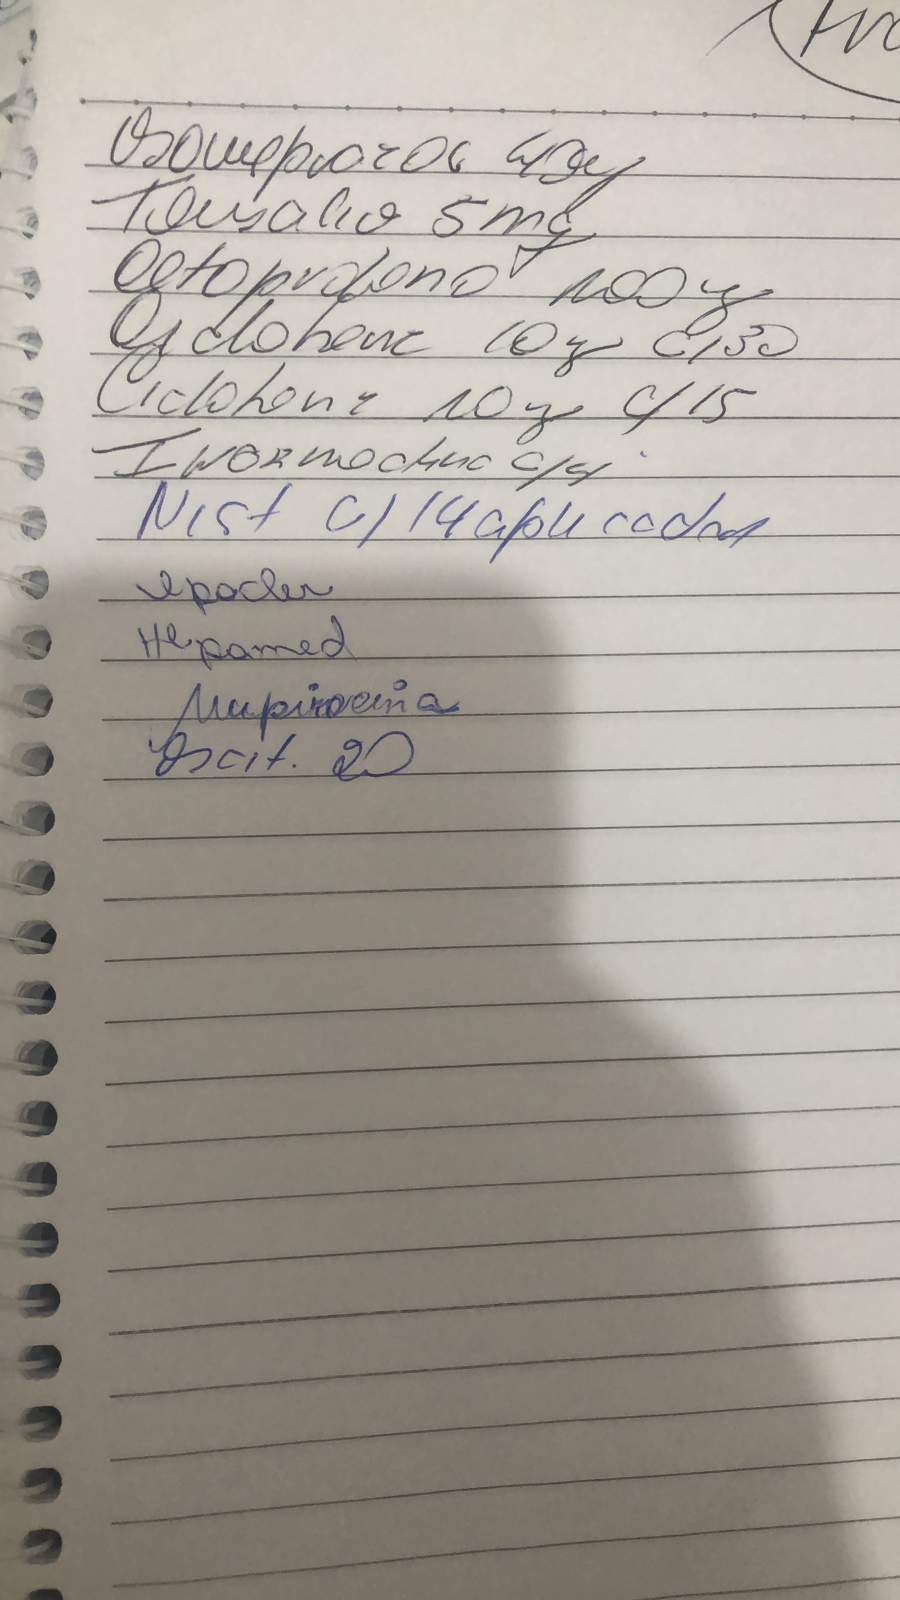 Esomeprazol 40mg
Tensaliv 5mg
Cetoprofeno 100mg
Ciclobenz 10mg c/30
Ciclobenz 10mg c/15
Ivermectina c/4
Nist c/14 aplicador
Epocler
Hepamed
Mupirocina
Escit. 20